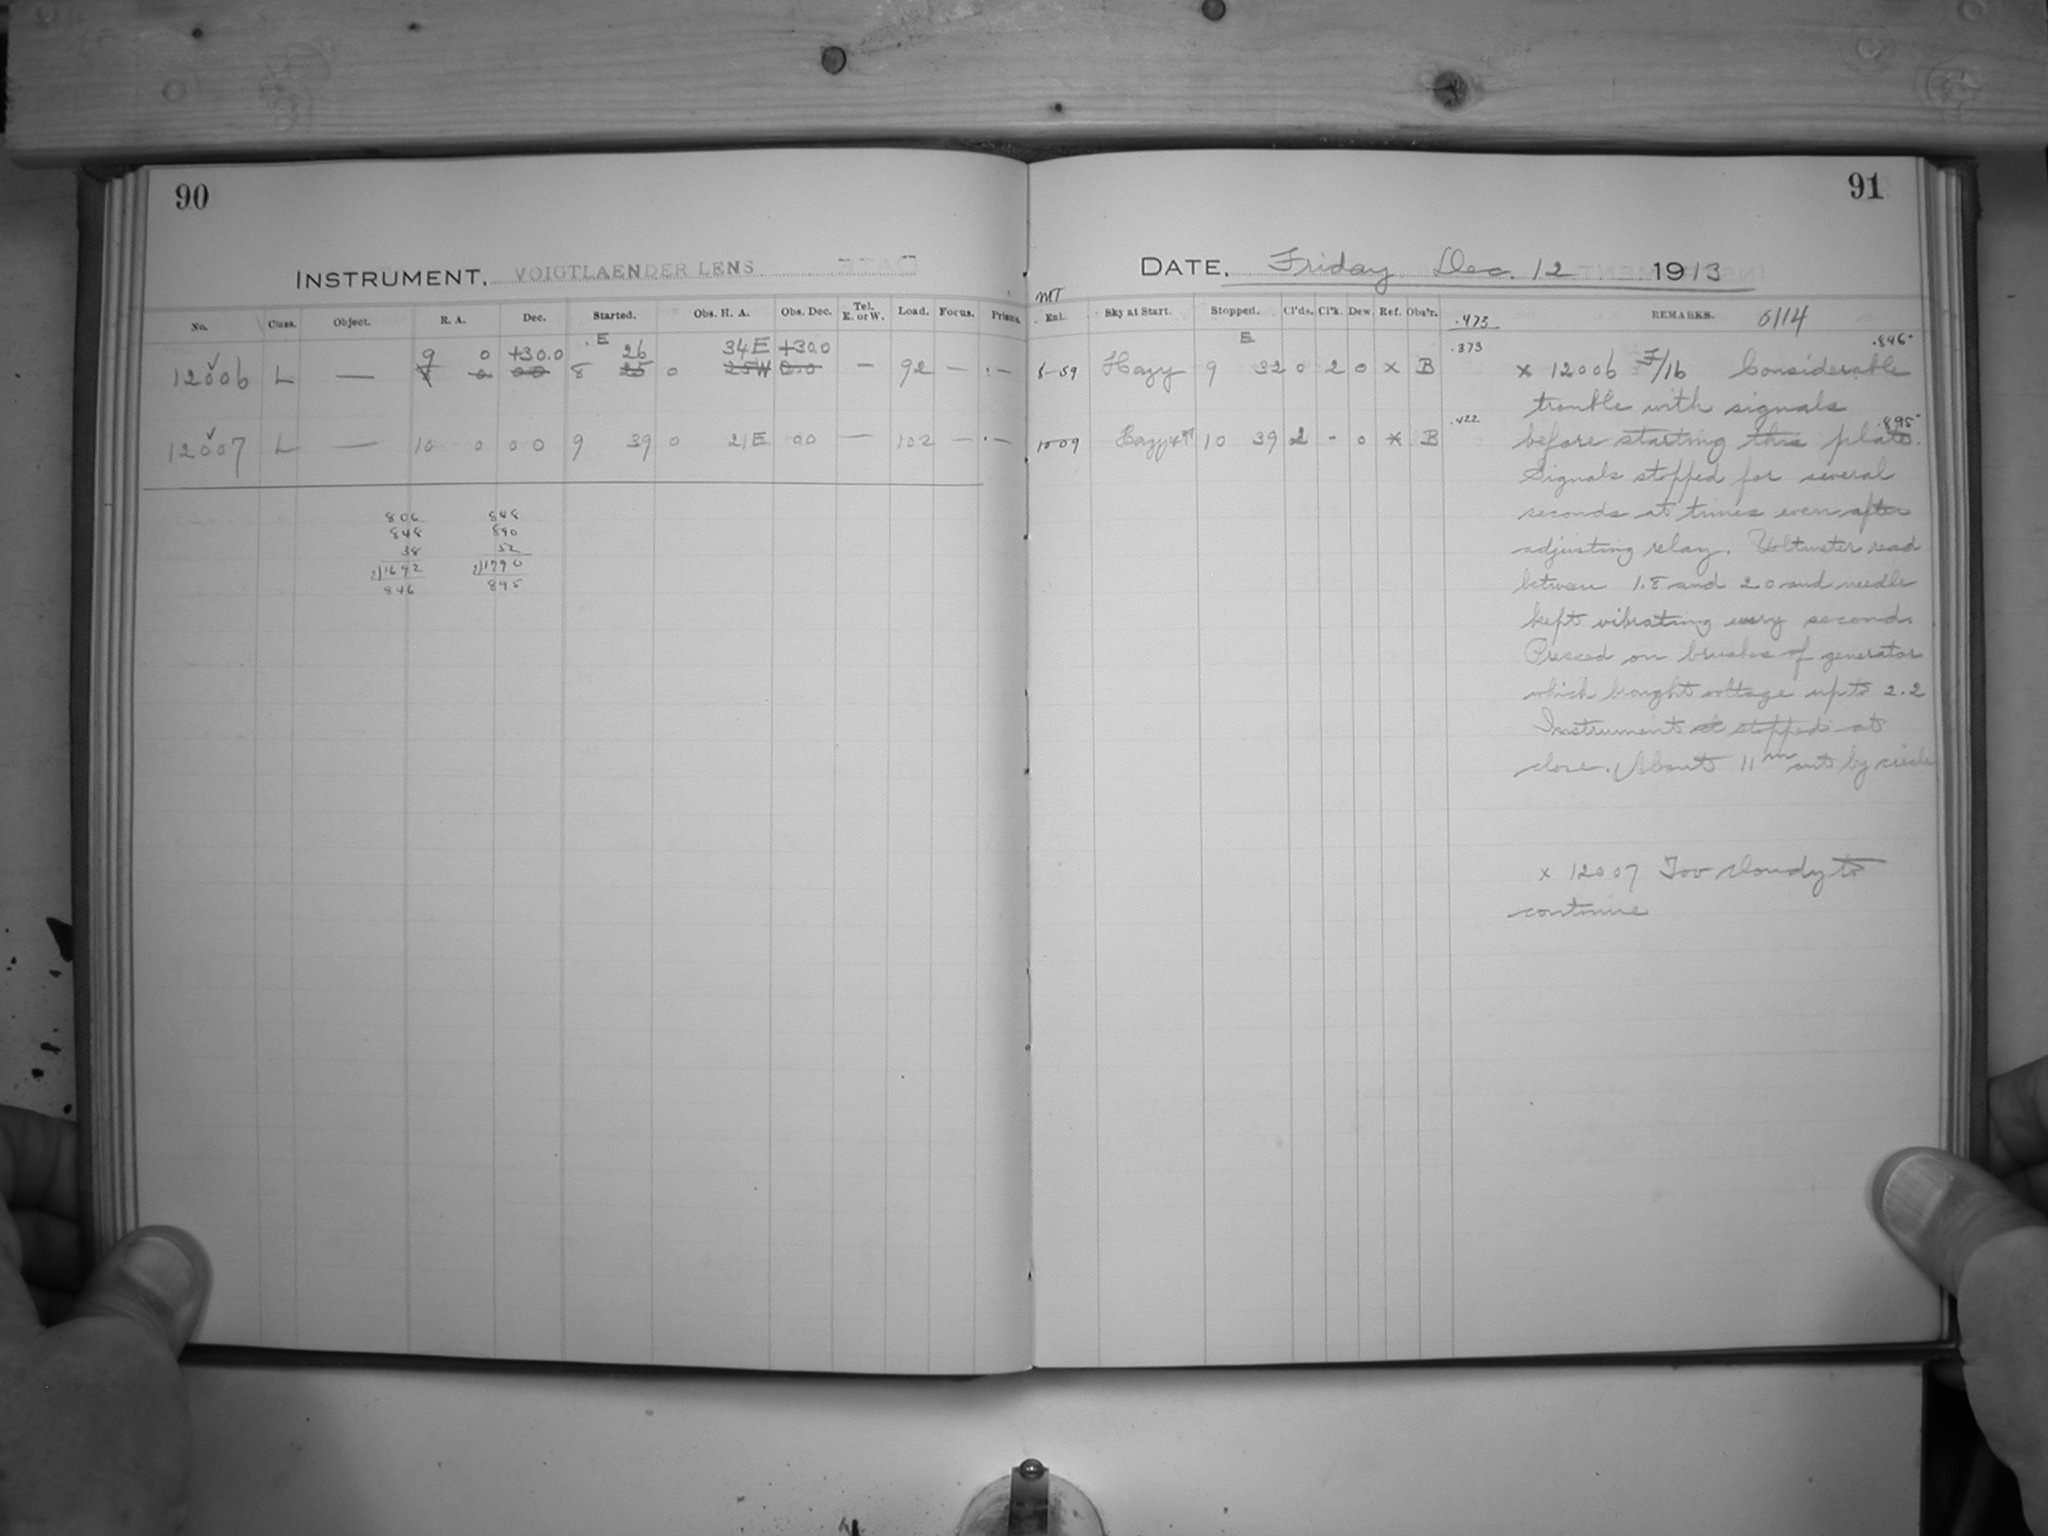 90
91
INSTRUMENT, VOIGTLAENDER LENS
DATE, Friday Dec. 12 1913
No. Class. Object. R. A. Dec. Started. Obs. H. A. Obs. Dec. Tel. E. or W. Load. Focus. Prisms.
MT
Exl. Sky at Start. Stopped. Cl'ds. Cl'k. Dew. Ref. Obs'r. .473 REMARKS. 6114
E
E
.846
9 0 +30.0 26 34E +30.0
12006 L — 8 0 00 8 25 0 25W 0.0 — 92 — —
.373
8-59 Hazy 9 32 0 2 0 x B x 12006 F/16 Considerable
trouble with signals
.422 .895
12007 L — 10 0 00 9 39 0 21E 00 — 102 — —
10 09 Hazy 10 39 2 - 0 x B before starting this plate.
Signals stopped for several
seconds at times even after
adjusting relay. Voltmeter read
between 1.8 and 2.0 and needle
kept vibrating every second.
Pressed on brushes of generator
which brought voltage up to 2.2
Instrument stopped at
close. About 11m out by circle
x 12007 Too cloudy to
continue
806 848
848 890
38 52
2)1692 2)1790
846 895